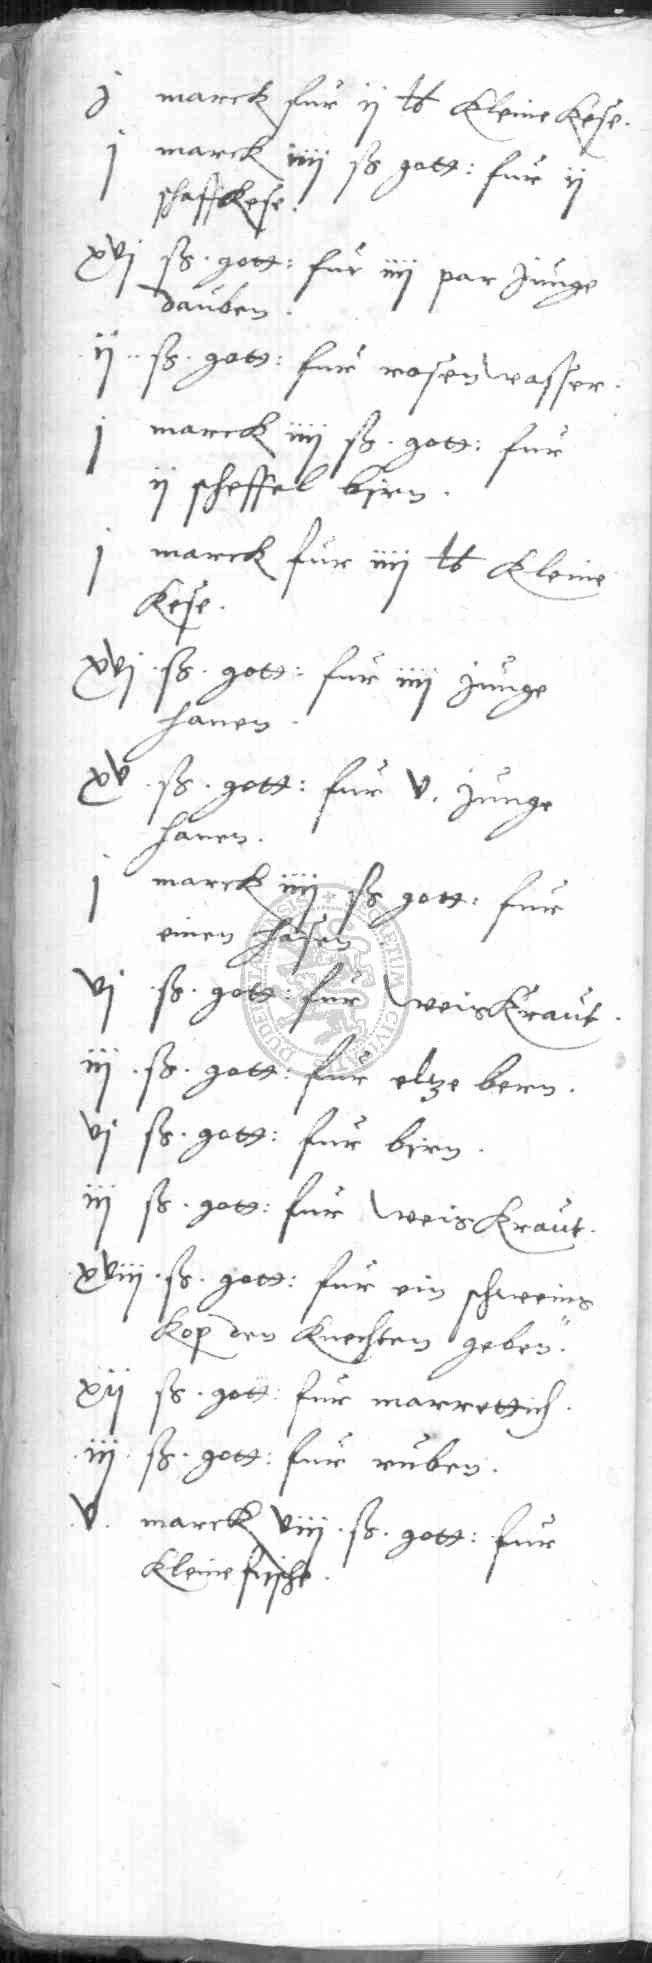 j marck fur ij ℔ kleine kese.
j marck iiij ß gott: fur ij
schaffkese.
xvj ß. gott: fur iiij par junge
dauben.
ij ß. gott: fur rosenwasser.
j marck iiij ß. gott: fur
ij scheffel birn.
j marck fur iiij ℔ kleine
kese.
xvj ß. gott: fur iiij junge
hanen.
xv ß. gott: fur v. junge
hanen.
j marck iiij ß gott: fur
einen hasen
vj ß. gott: fur weiskraut.
iij. ß. gott: fur eltze bern.
vj ß. gott: fur birn.
iij ß. gott: fur weiskraut.
xviij. ß. gott: fur ein schweins
kop den knechten geben.
xij ß. gott: fur marrettich.
iij. ß. gott: fur ruben.
v. marck viij. ß. gott: fur
kleine fische.
SECRETUM CIVITATIS